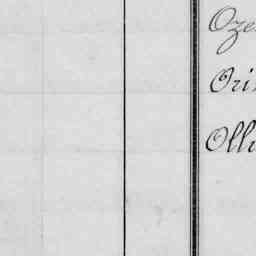 Oze
Ori
Olli